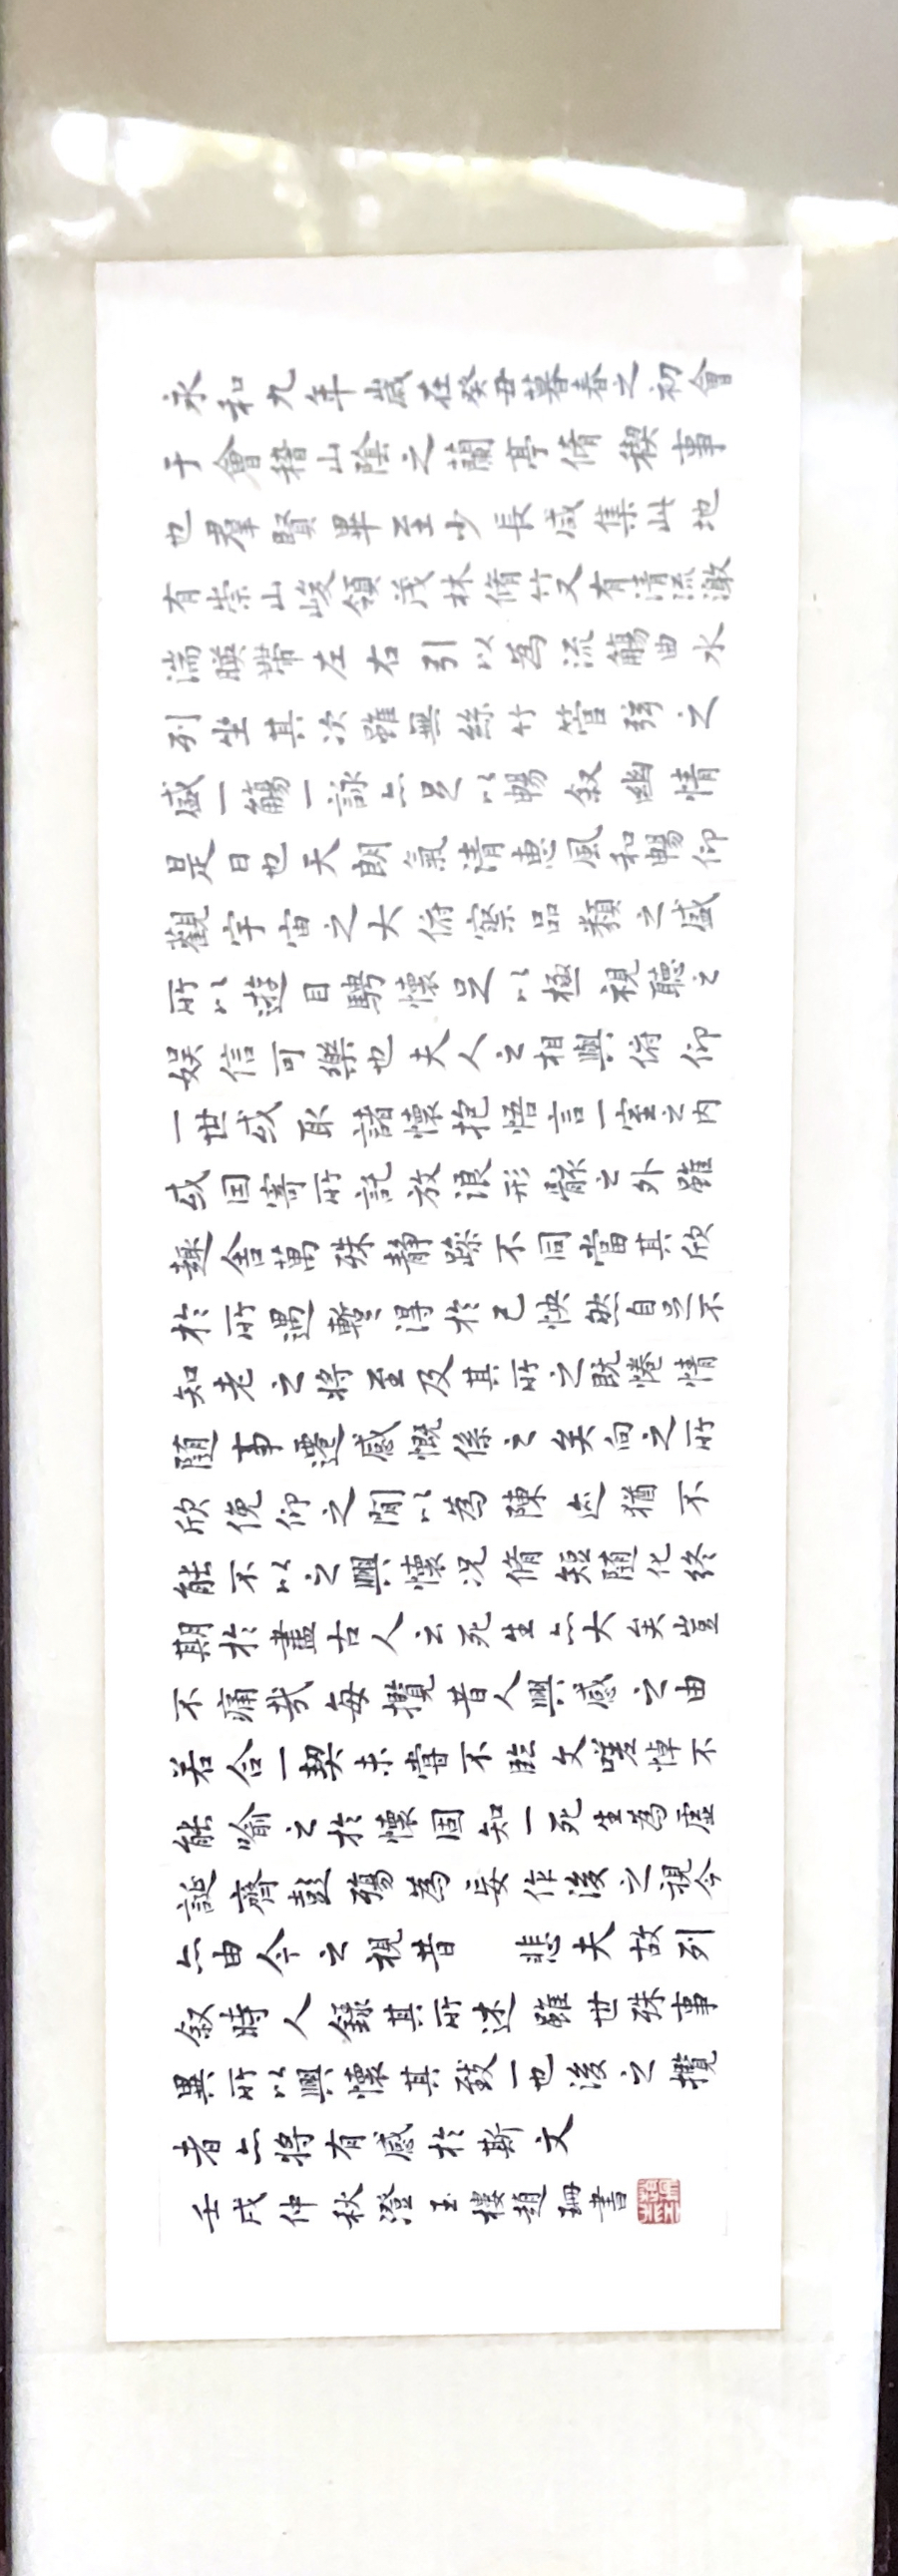 永和九年歲在癸丑暮春之初會
于會稽山陰之蘭亭脩稧事
也羣賢畢至少長咸集此地
有崇山峻領茂林脩竹又有清流激
湍暎帶左右引以為流觴曲水
列坐其次雖無絲竹管弦之
盛一觴一詠亦足以暢叙幽情
是日也天朗氣清惠風和暢仰
觀宇宙之大俯察品類之盛
所以遊目騁懷足以極視聽之
娛信可樂也夫人之相與俯仰
一世或取諸懷抱悟言一室之內
或因寄所託放浪形骸之外雖
趣舍萬殊静躁不同當其欣
於所遇暫得於己怏然自足不
知老之將至及其所之既惓情
随事遷感慨係之矣向之所
欣俛仰之閒以為陳迹猶不
能不以之興懷况脩短随化終
期於盡古人云死生亦大矣豈
不痛哉每攬昔人興感之由
若合一契未嘗不臨文嗟悼不
能喻之於懷固知一死生為虛
誕齊彭殤為妄作後之視今
亦由今之視昔 悲夫故列
叙時人錄其所述雖世殊事
異所以興懷其致一也後之攬
者亦將有感於斯文
壬戌仲秋澄玉樓趙珊書